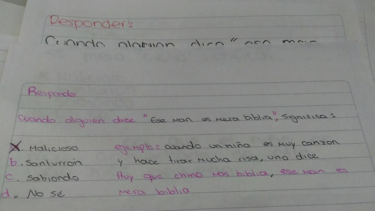 Responder:
Cuando alguien dice "ese man
Respondo
Cuando alguien dice "Ese man es mera biblia", significa:
X Malicioso
b. Santurron
c. Sabiondo
d. No se
ejemplo: cuando un niño es muy canson
y hace tirar mucha risa, uno dice
Huy que chino tos biblia, ese man es
mera biblia